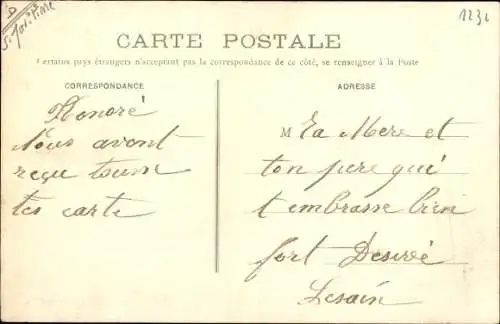 1232
CARTE POSTALE
Certains pays étrangers n'acceptent pas la correspondance de ce côté, se renseigner à la Poste
CORRESPONDANCE
Honoré
Nous avont
reçu tousse
tes carte
ADRESSE
M Ta Mere et
ton pere qui
t embrasse bien
fort Desiré
Lesain